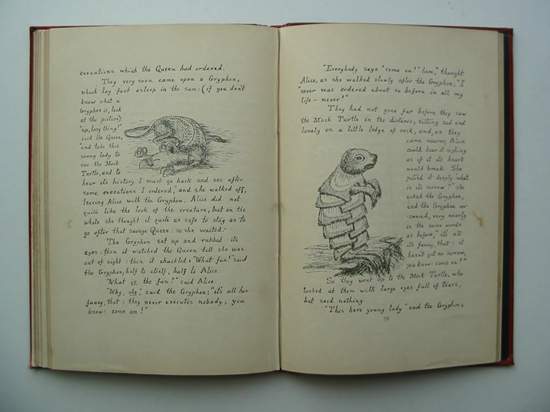 executions which the Queen had ordered.
They very soon came upon a Gryphon,
which lay fast asleep in the sun: (if you don't
know what a
Gryphon is, look
at the picture)
"Up, lazy thing!"
said the Queen,
"and take this
young lady to
see the Mock
Turtle, and to
hear its history. I must go back and see after
some executions I ordered," and she walked off,
leaving Alice with the Gryphon. Alice did not
quite like the look of the creature, but on the
whole she thought it quite as safe to stay as to
go after that savage Queen: so she waited.
The Gryphon sat up and rubbed its
eyes: then it watched the Queen till she was
out of sight: then it chuckled. "What fun!" said
the Gryphon, half to itself, half to Alice.
"What is the fun?" said Alice.
"Why, she," said the Gryphon; "it's all her
fancy, that: they never executes nobody, you
know: come on!"
"Everybody says 'come on!' here," thought
Alice, as she walked slowly after the Gryphon; "I
never was ordered about so before in all my
life—never!"
They had not gone far before they saw
the Mock Turtle in the distance, sitting sad and
lonely on a little ledge of rock, and, as they
came nearer, Alice
could hear it sighing
as if its heart
would break. She
pitied it deeply: "what
is its sorrow?" she
asked the Gryphon,
and the Gryphon an-
swered, very nearly
in the same words
as before, "it's all
its fancy, that: it
hasn't got no sorrow,
you know: come on!"
So they went up to the Mock Turtle, who
looked at them with large eyes full of tears,
but said nothing.
"This here young lady" said the Gryphon,